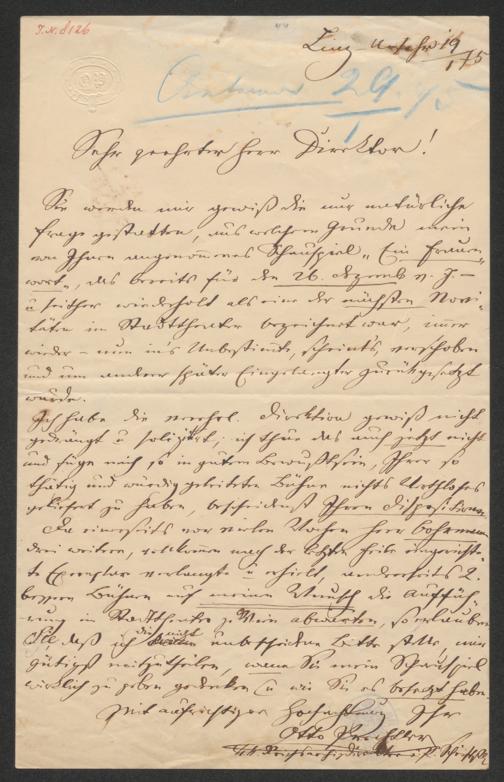 I.N. 8126
Linz Urfahr 19/1 75
29
1
75
Sehr geehrter Herr Direktor!
Sie werden mir gewiß die nur natürliche
Frage gestatten, aus welchem Grunde mein
von Ihnen angenommenes Schauspiel „Ein Frauen-
wort", das bereits für den 26. Dezemb. v. J.
u seither wiederholt als eine der nächsten Novi-
täten im Stadttheater bezeichnet war, immer
wieder – nun in's Unbestimmte, scheint's, verschoben
und um anderer später Eingelangter zurückgesetzt
wurde.
Ich habe die verehrl. Direktion gewiß nicht
gedrängt u sollizitirt, ich thue das auch jetzt nicht
und füge mich so in gutem Bewußtsein, Ihrer so
thätig und würdig geleiteten Bühne nichts Werthloses
geliefert zu haben, bescheidenst Ihren Dispositionen.
Da einerseits vor vielen Wochen Herr
drei weitere, vollkommen nach der letzten Feile eingerichte-
te Exemplar verlangte u erhielt, anderseits 2.
bessere Bühnen auf meinen Wunsch die Auffüh-
rung im Stadttheater z. Wien abwarten, so erlauben
Sie daß ich die nicht unbescheidene Bitte stelle, mir
gütigst mitzutheilen, wann Sie mein Schauspiel
wirklich zu geben gedenken (u wie Sie es besetzt haben
Mit aufrichtiger Hochachtung Ihr
Otto Prechtler